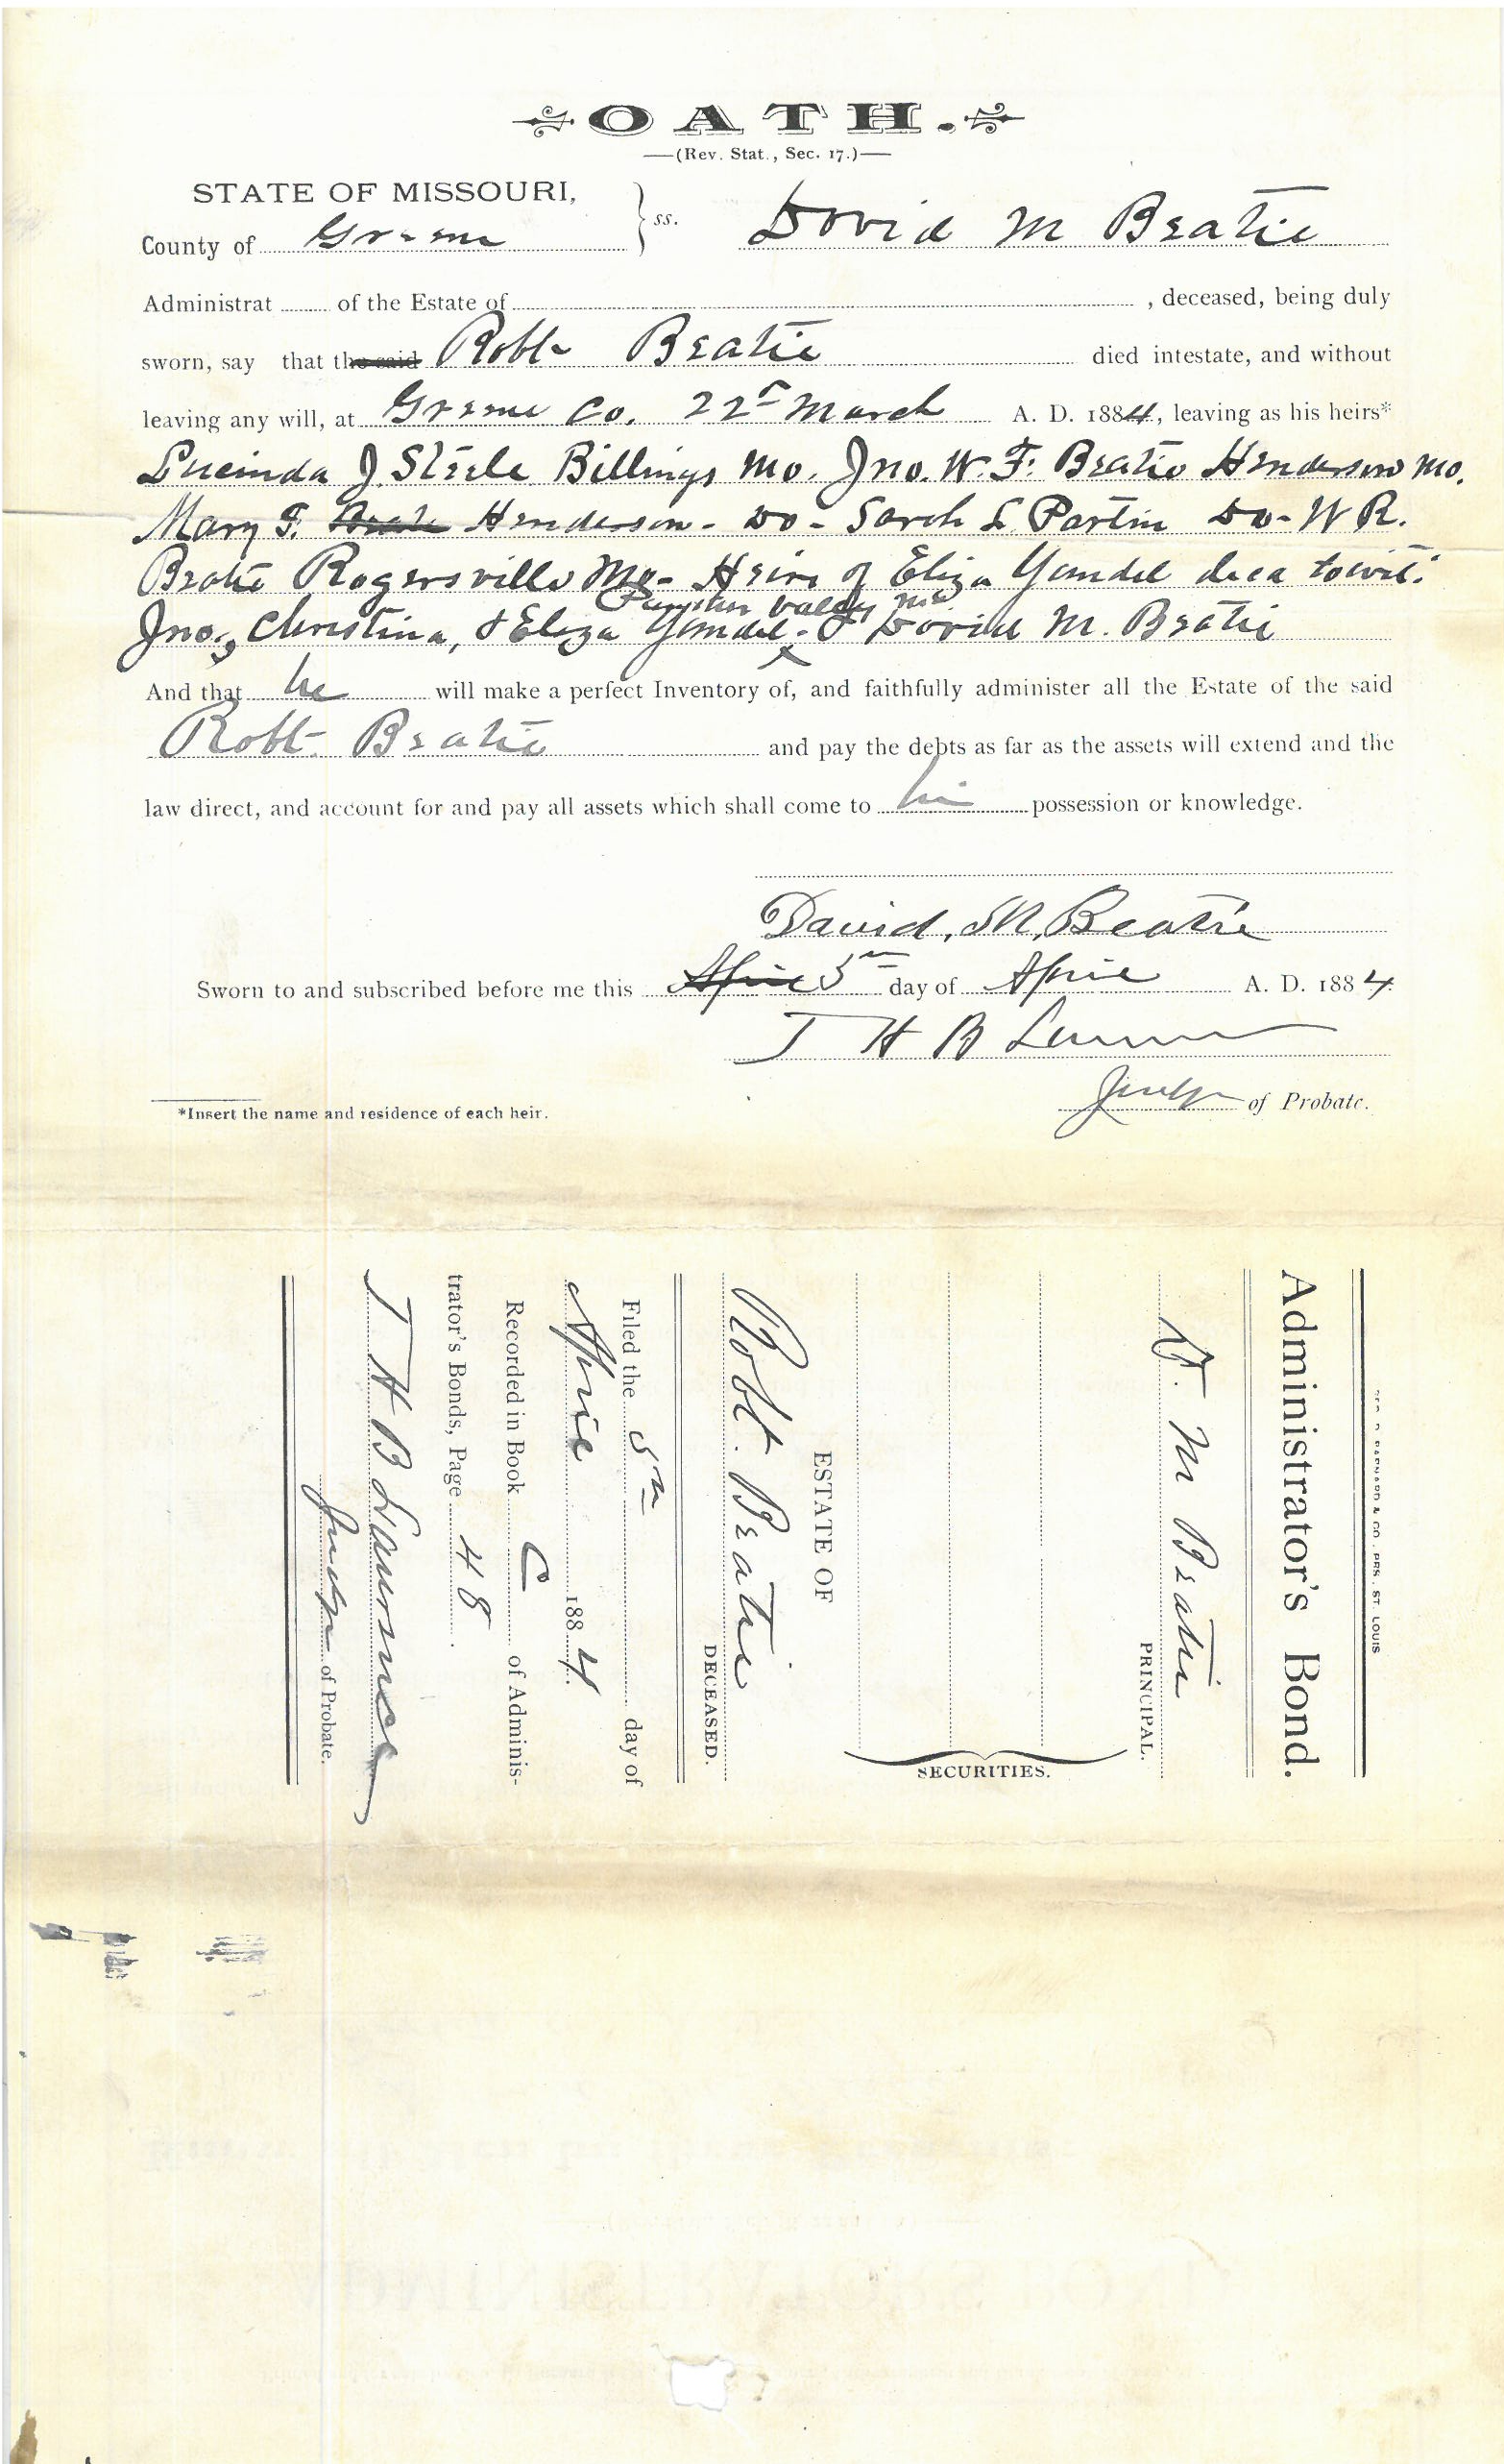 OATH.
(Rev. Stat., Sec. 17.)
STATE OF MISSOURI,
County of Greene } ss. David M Beatie
Administrat of the Estate of , deceased, being duly
sworn, say that the said Robt Beatie died intestate, and without
leaving any will, at Greene Co. 22d March A. D. 1884, leaving as his heirs*
Lucinda J. Steele Billings Mo. Jno. W. F. Beatie Henderson Mo.
Mary F. Beatie Henderson - Do - Sarah L Partin Do - W R.
Beatie Rogersville Mo - Heirs of Eliza Yandel decd towit:
Valley Mo
Jno, Christina, & Eliza Yandel - & David M. Beatie
And that he will make a perfect Inventory of, and faithfully administer all the Estate of the said
Robt. Beatie and pay the debts as far as the assets will extend and the
law direct, and account for and pay all assets which shall come to his possession or knowledge.
David. M. Beatie
Sworn to and subscribed before me this April 5th day of April A. D. 1884
J H B
*Insert the name and residence of each heir.
Judge of Probate.
& CO. PRS. ST. LOUIS
Administrator's Bond.
D. M Beatie
PRINCIPAL.
SECURITIES.
ESTATE OF
Robt. Beatie
DECEASED.
Filed the 5th day of
April 1884
Recorded in Book C of Adminis-
trator's Bonds, Page 48.
J H B
Judge of Probate.